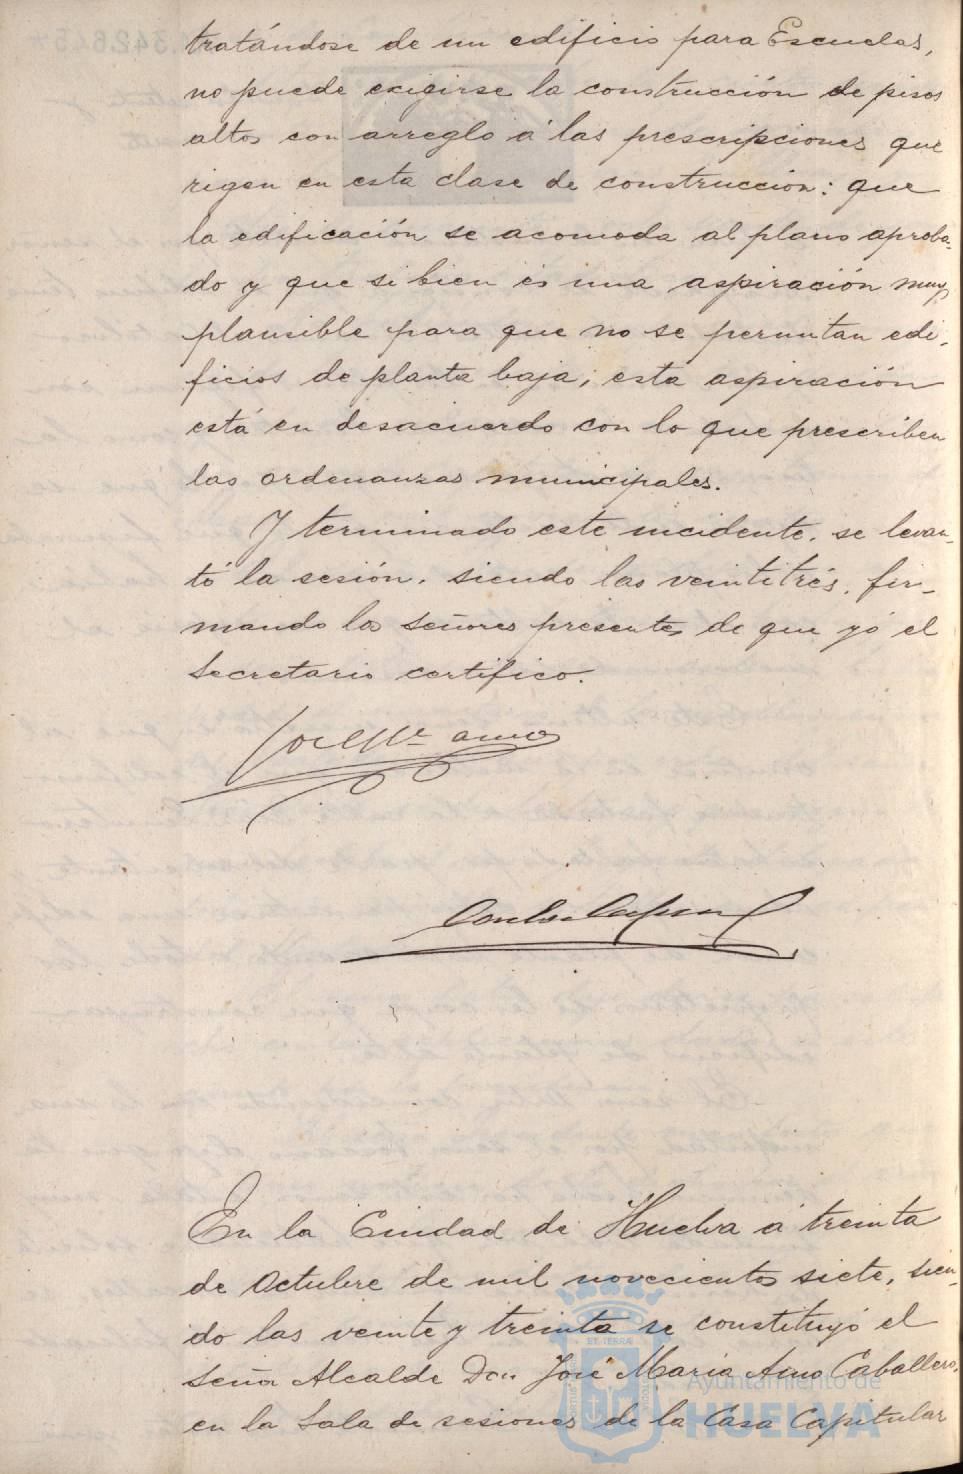 tratándose de un edificio para Escuelas,
no puede exigirse la construcción de pisos
altos con arreglo á las prescripciones que
rigen en esta clase de construcción: que
la edificación se acomoda al plano aproba-
do y que si bien és una aspiración muy
plausible para que no se permitan edi-
ficios de planta baja, esta aspiración
está en desacuerdo con lo que prescriben
las ordenanzas municipales.
Y terminado este incidente, se levan-
tó la sesión, siendo las veintitrés, fir-
mando los Señores presentes de que yó el
Secretario certifico.
José Mª Amo
En la Ciudad de Huelva á treinta
de Octubre de mil novecientos siete, sien-
do las veinte y treinta se constituyó el
Señor Alcalde Don José María Amo Caballero,
en la Sala de sesiones de la Casa Capitular
Ayuntamiento de
HUELVA